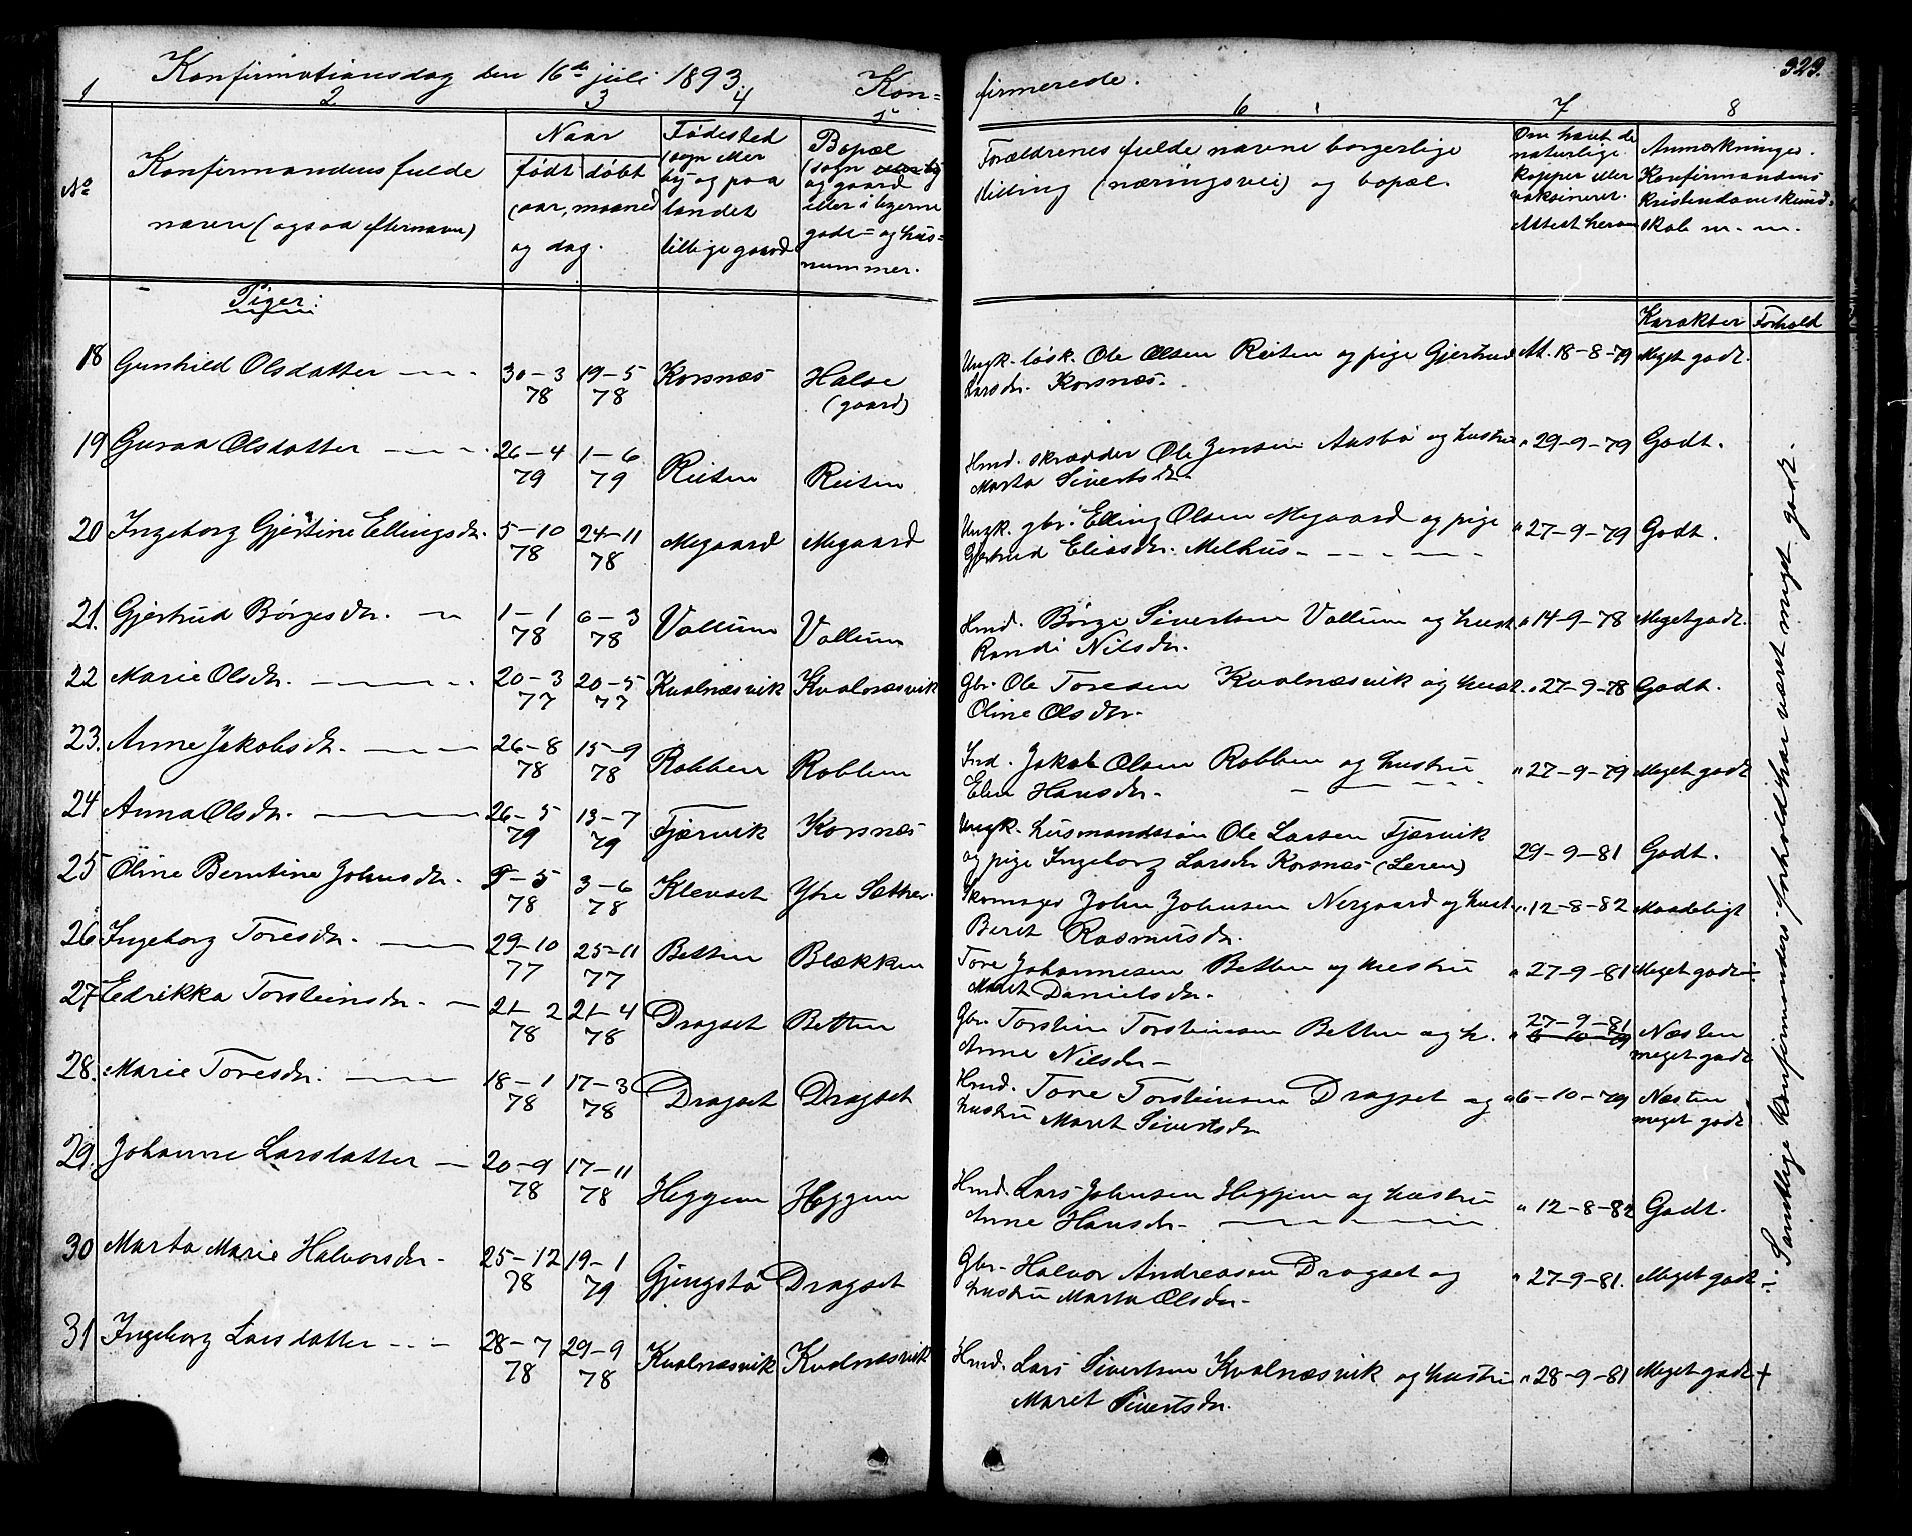 Konfirmationsdag den 16de juli 1893. Kon=
firmerede. 323.
1 2 3 4 5 6 7 8
No
Konfirmandens fulde
navn (ogsaa efternavn)
Naar
født døbt
(aar, maaned
og dag.
Fødested
(sogn eller
by og paa
landet
tillige gaard
Bopæl
(sogn
og gaard
eller i byerne
gade= og hus=
nummer.
Forældrenes fulde navne borgerlige
stilling (næringsvei) og bopæl.
Om havt de
naturlige
kopper eller
vaksineret.
Attest herom
Anmærkninger.
Konfirmandens
kristendomskund=
skab m. m.
Piger:
Karakter Forhold
18 Gunhild Olsdatter 30-3 78 19-5 78 Korsnæs Halse (gaard) Ungk. løsk. Ole Olsen Reiten og pige Gjertrud At. 18-8-79 Meget godt.
Larsdr. Korsnæs.
19 Guraa Olsdatter 26-4 79 1-6 79 Reiten Reiten Hmd. skrædder Ole Jensen Aasbø og hustru " 29-9-79 Godt.
Marta Sivertsdr.
20 Ingeborg Gjertine Ellingsdr. 5-10 78 24-11 78 Megaard Megaard Ungk. gbr. Elling Olsen Megaard og pige " 27-9-79 Godt.
Gjertrud Eliasdr. Melhus
21. Gjertrud Børgesdr. 1-1 78 6-3 78 Vollum Vollum Hmd. Børge Sivertsen Vollum og hust. " 14-9-78 Meget godt.
Randi Nilsdr.
22 Marie Olsdr. 20-3 77 20-5 77 Kvalnæsvik Kvalnæsvik Gbr. Ole Toresen Kvalnæsvik og hust. " 27-9-78 Godt.
Oline Olsdr.
23. Anne Jakobsdr. 26-8 78 15-9 78 Robben Robben Ind. Jakob Olsen Robben og hustru " 27-9-79 Meget godt
Elen Hansdr.
24 Anna Olsdr. 26-5 79 13-7 79 Fjærvik Korsnæs Ungk. husmandssøn Ole Larsen Fjærvik
og pige Ingeborg Larsdr Korsnæs (Leren) 29-9-81 Godt.
25 Oline Berntine Johnsdr. 5 78 3-6 78 Klevset Ytre Sættre. Skomager John Johnsen Nergaard og hust. " 12-8-82 Maadeligt
Beret Rasmusdr.
26 Ingeborg Toresdr. 29-10 77 25-11 77 Betten Blækken Tore Johannesen Betten og hustru " 27-9-81 Meget godt
Maret Danielsdr.
27 Edrikka Torsteinsdr. 21-2 78 21-4 78 Dragset Betten Gbr. Torstein Torsteinsen Betten og h. " 27-9-81 6-10-79 Næsten
Anne Nilsdr. meget godt
28. Marie Toresdr. 18-1 78 17-3 78 Dragset Dragset Hmd. Tore Torsteinsen Dragset og " 6-10-79 Næsten
hustru Maret Sivertsdr meget godt
29. Johanne Larsdatter 20-9 78 17-11 78 Heggem Heggem Hmd. Lars Johnsen Heggem og hustru " 12-8-82 Godt.
Anne Hansdr.
30 Marta Marie Halvorsdr. 25-12 78 19-1 79 Gjengstø Dragset Gbr. Halvor Andreasen Dragset og " 27-9-81. Meget godt
hustru Marta Olsdr.
31 Ingeborg Larsdatter 28-7 78 29-9 78 Kvalnæsvik Kvalnæsvik Hmd. Lars Sivertsen Kvalnæsvik og hustru " 28-9-81 Meget godt +
Maret Sivertsdr.
Samtlige konfirmanders forhold har været meget godt.